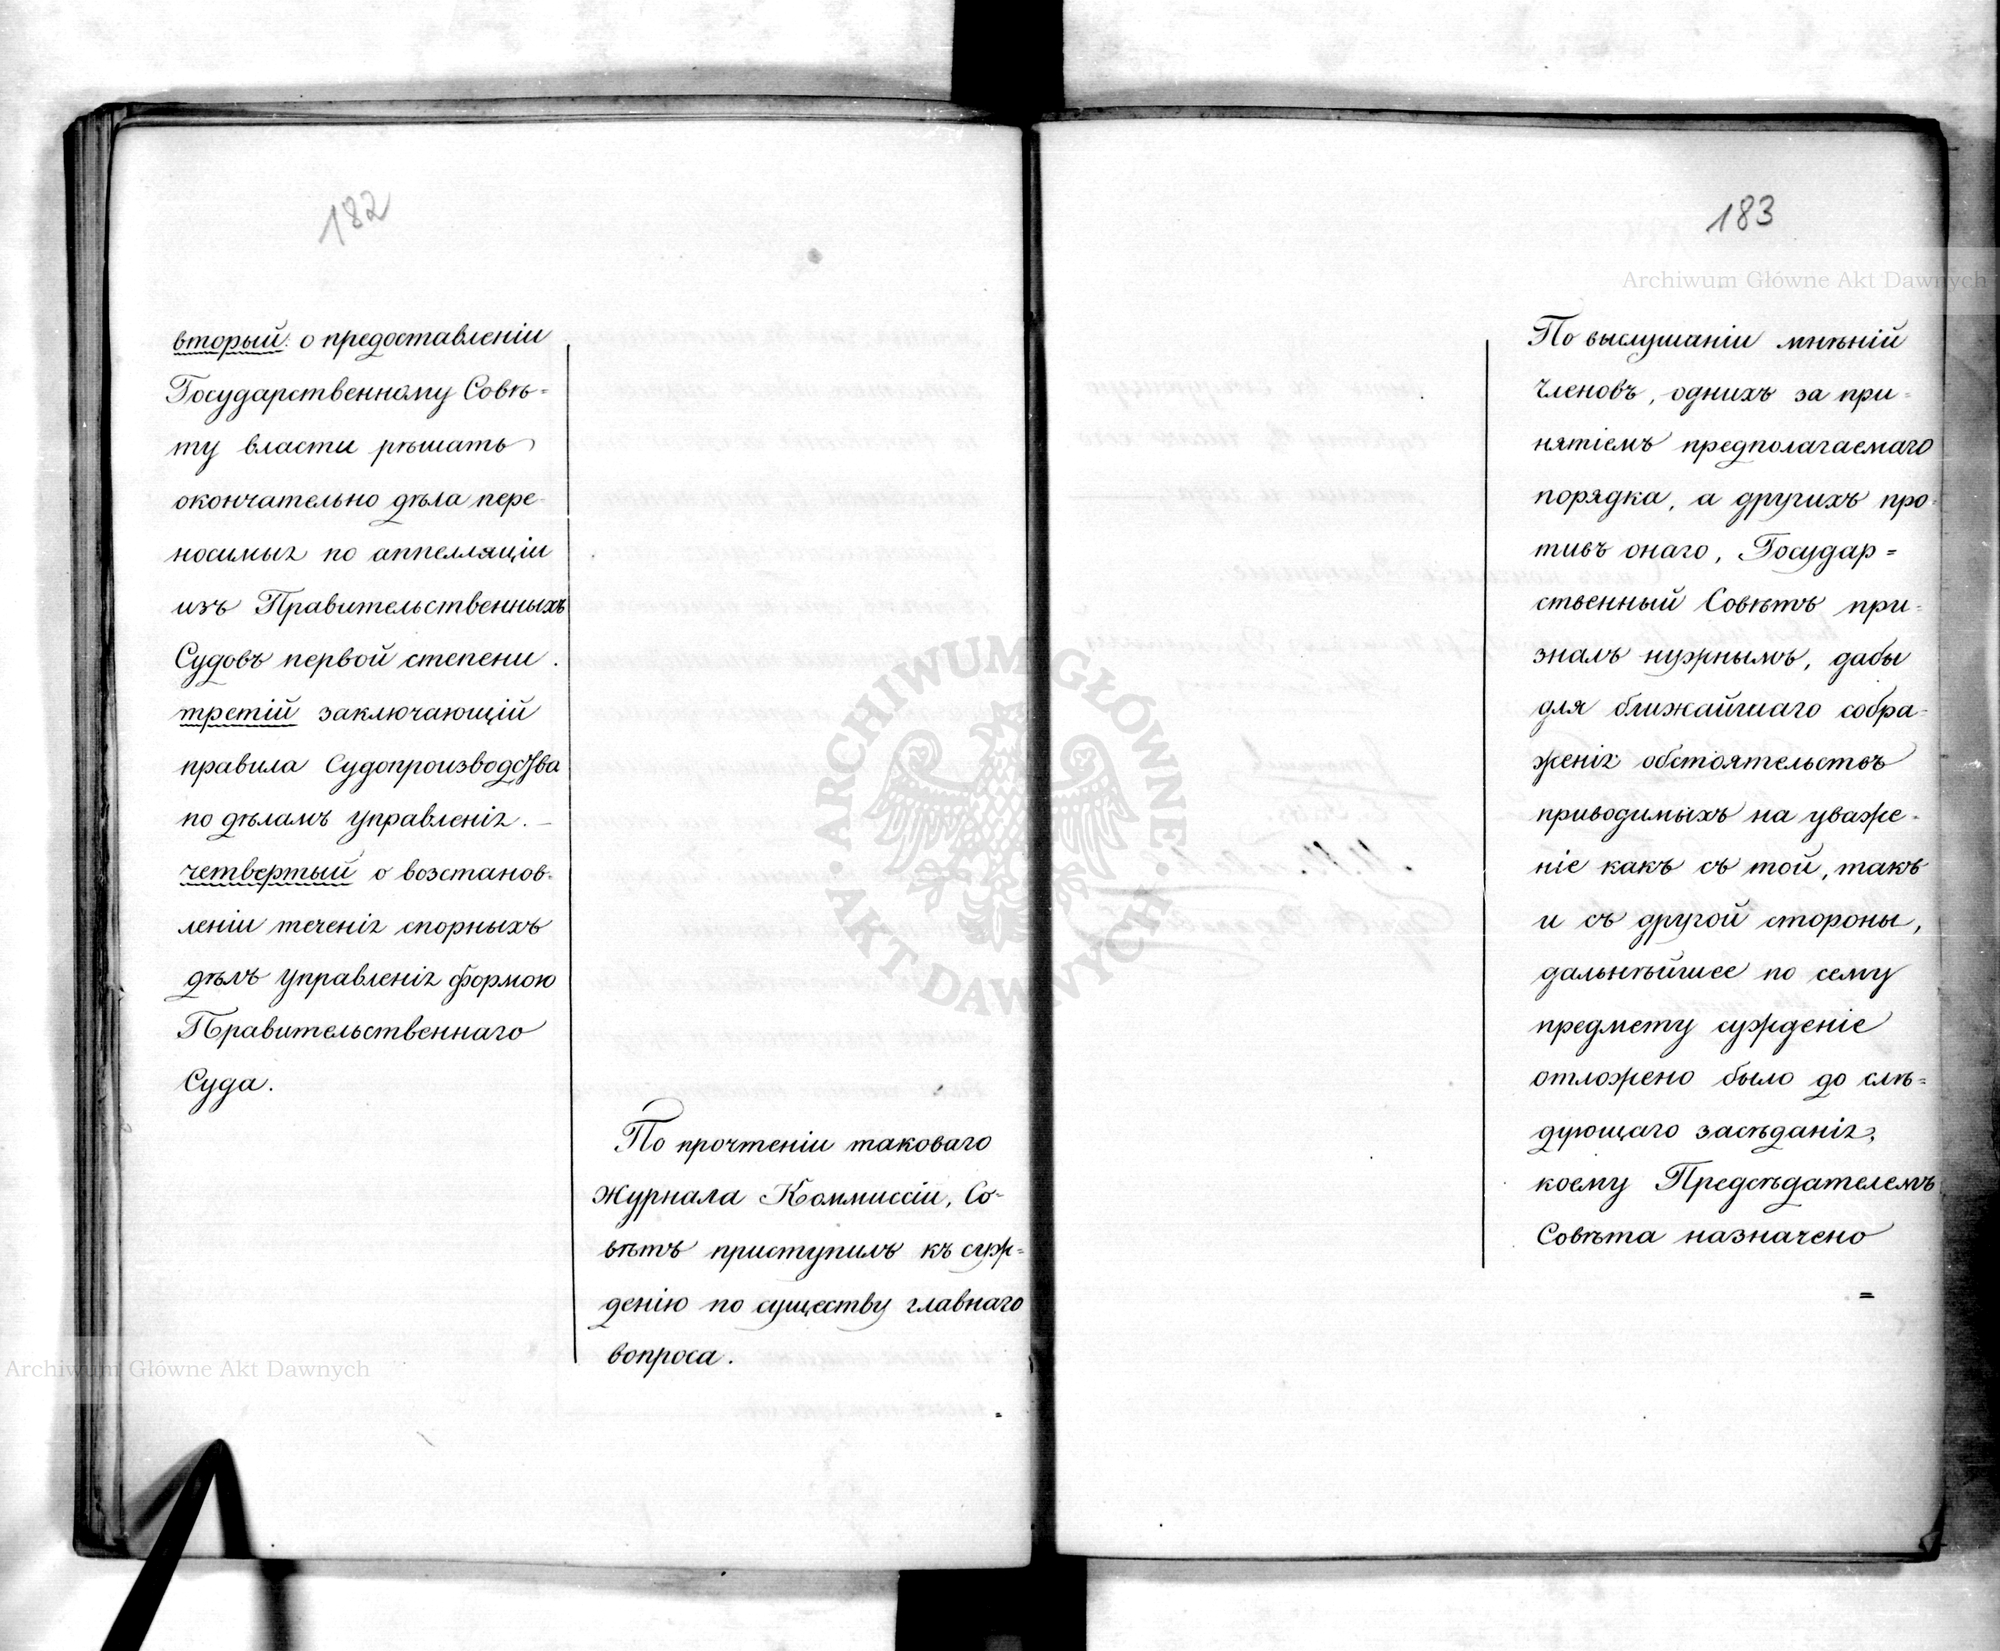 182
вторый: о предоставленіи
Государственному Совѣ=
ту власти рѣшать
окончательно дѣла пере-
носимыя по аппелляціи
изъ Правительственныхъ
Судовъ первой степени.
третій заключающій
правила Судопроизводства
по дѣламъ управленія. —
четвертый о возстанов-
леніи теченія спорныхъ
дѣлъ управленія формою
Правительственнаго
Суда.
По прочтеніи таковаго
Журнала Коммиссіи, Со-
вѣтъ приступилъ къ суж=
денію по существу главнаго
вопроса.
183
По выслушаніи мнѣній
Членовъ, однихъ за при-
нятіемъ предполагаемаго
порядка, а другихъ про-
тивъ онаго, Государ=
ственный Совѣтъ при-
зналъ нужнымъ, дабы
для ближайшаго собра-
женія обстоятельствъ
приводимыхъ на уваже-
ніе какъ съ той, такъ
и съ другой стороны,
дальнѣйшее по сему
предмету сужденіе
отложено было до слѣ=
дующаго засѣданія,
коему Предсѣдателемъ
Совѣта назначено
=
Archiwum Główne Akt Dawnych
ARCHIWUM GŁÓWNE · AKT DAWNYCH ·
Archiwum Główne Akt Dawnych